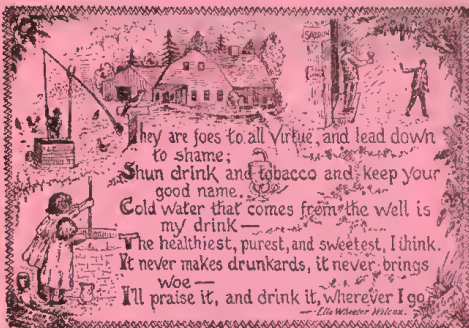 They are foes to all virtue, and lead down
to shame;
Shun drink and tobacco and keep your
good name.
Cold water that comes from the well is
my drink—
The healthiest, purest, and sweetest, I think.
It never makes drunkards, it never brings
woe—
I'll praise it, and drink it, wherever I go.
—Ella Wheeler Wilcox.